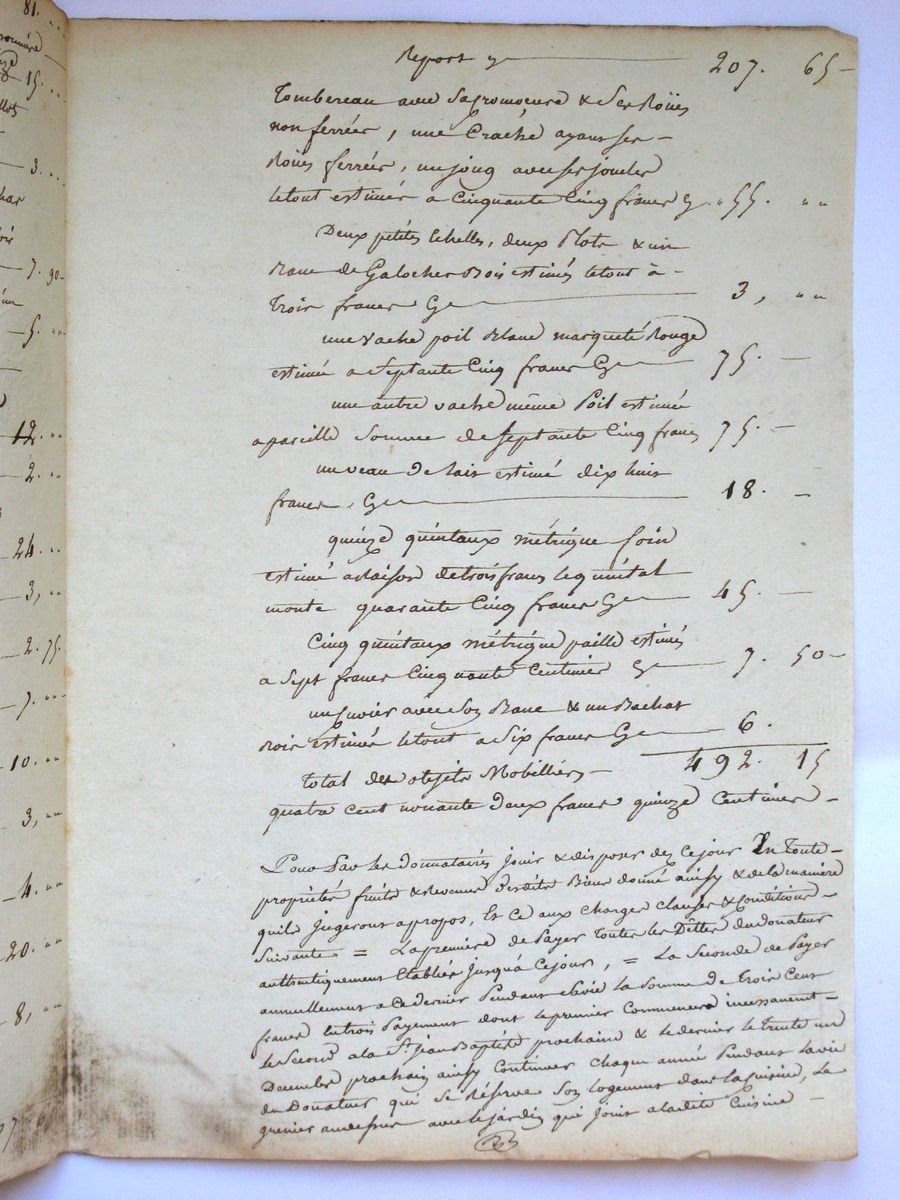 81. ..
15. ..
3. ..
7. 90-
5. ..
12. ..
2. ..
24. ..
3, ..
2. 75.
7. ..
10. ..
3, ..
4. ..
20. ..
8, ..
Report 207. 65-
Tombereau avec & Ses Roües
non ferrées, une Crache ayant ses
Roües ferrées, un joug avec ses joucles
le tout estimés a Cinquante Cinq francs 55. ..
Deux petites Echelles, deux Plots & un
de Galoches Bois estimés le tout à
Trois francs 3, ..
une vache poil Blanc marqueté Rouge
estimé a Septante Cinq francs 75. -
une autre vache même Poil estimée
a pareille Somme de Septante Cinq francs 75. -
un veau de lait estimé dix huit
francs 18. -
quinze quintaux métrique foin
estimé a Raison de trois francs le quintal
monte quarante Cinq francs 45. -
Cinq quintaux métrique paille estimés
a Sept francs Cinquante Centimes 7. 50-
un Cuvier avec Son Banc & un Bachat
Bois estimés le tout a Six francs 6.
Total des objets Mobilliers 492. 15
quatre cent nonante deux francs quinze Centimes -
Pour Par les Donnataires Jouir & disposer dez Ce jour En Toute
propriétés fruits & Revenus desdits Biens donné ainsy & de la manière
quils Jugerons apropos, Et Ce aux charges clauses & Conditions
Suivante = La première de Payer Toutes les Dêttes du donateur
authentiquement Etablies Jusqu'à Ce jour, = La Seconde de Payer
annuellement a Ce dernier Pendant Sa vie la Somme de Trois Cent
francs En trois Payement dont le premier Commencera incessament
le Second a la St Jean Baptiste prochaine & le dernier le Trente un
Decembre prochain ainsy Continuer chaque année Pendant la vie
du Donateur qui Se Réserve Son logement dans la Cuisine, Le
grenier au dessus avec le Jardin qui Joint a ladite Cuisine -